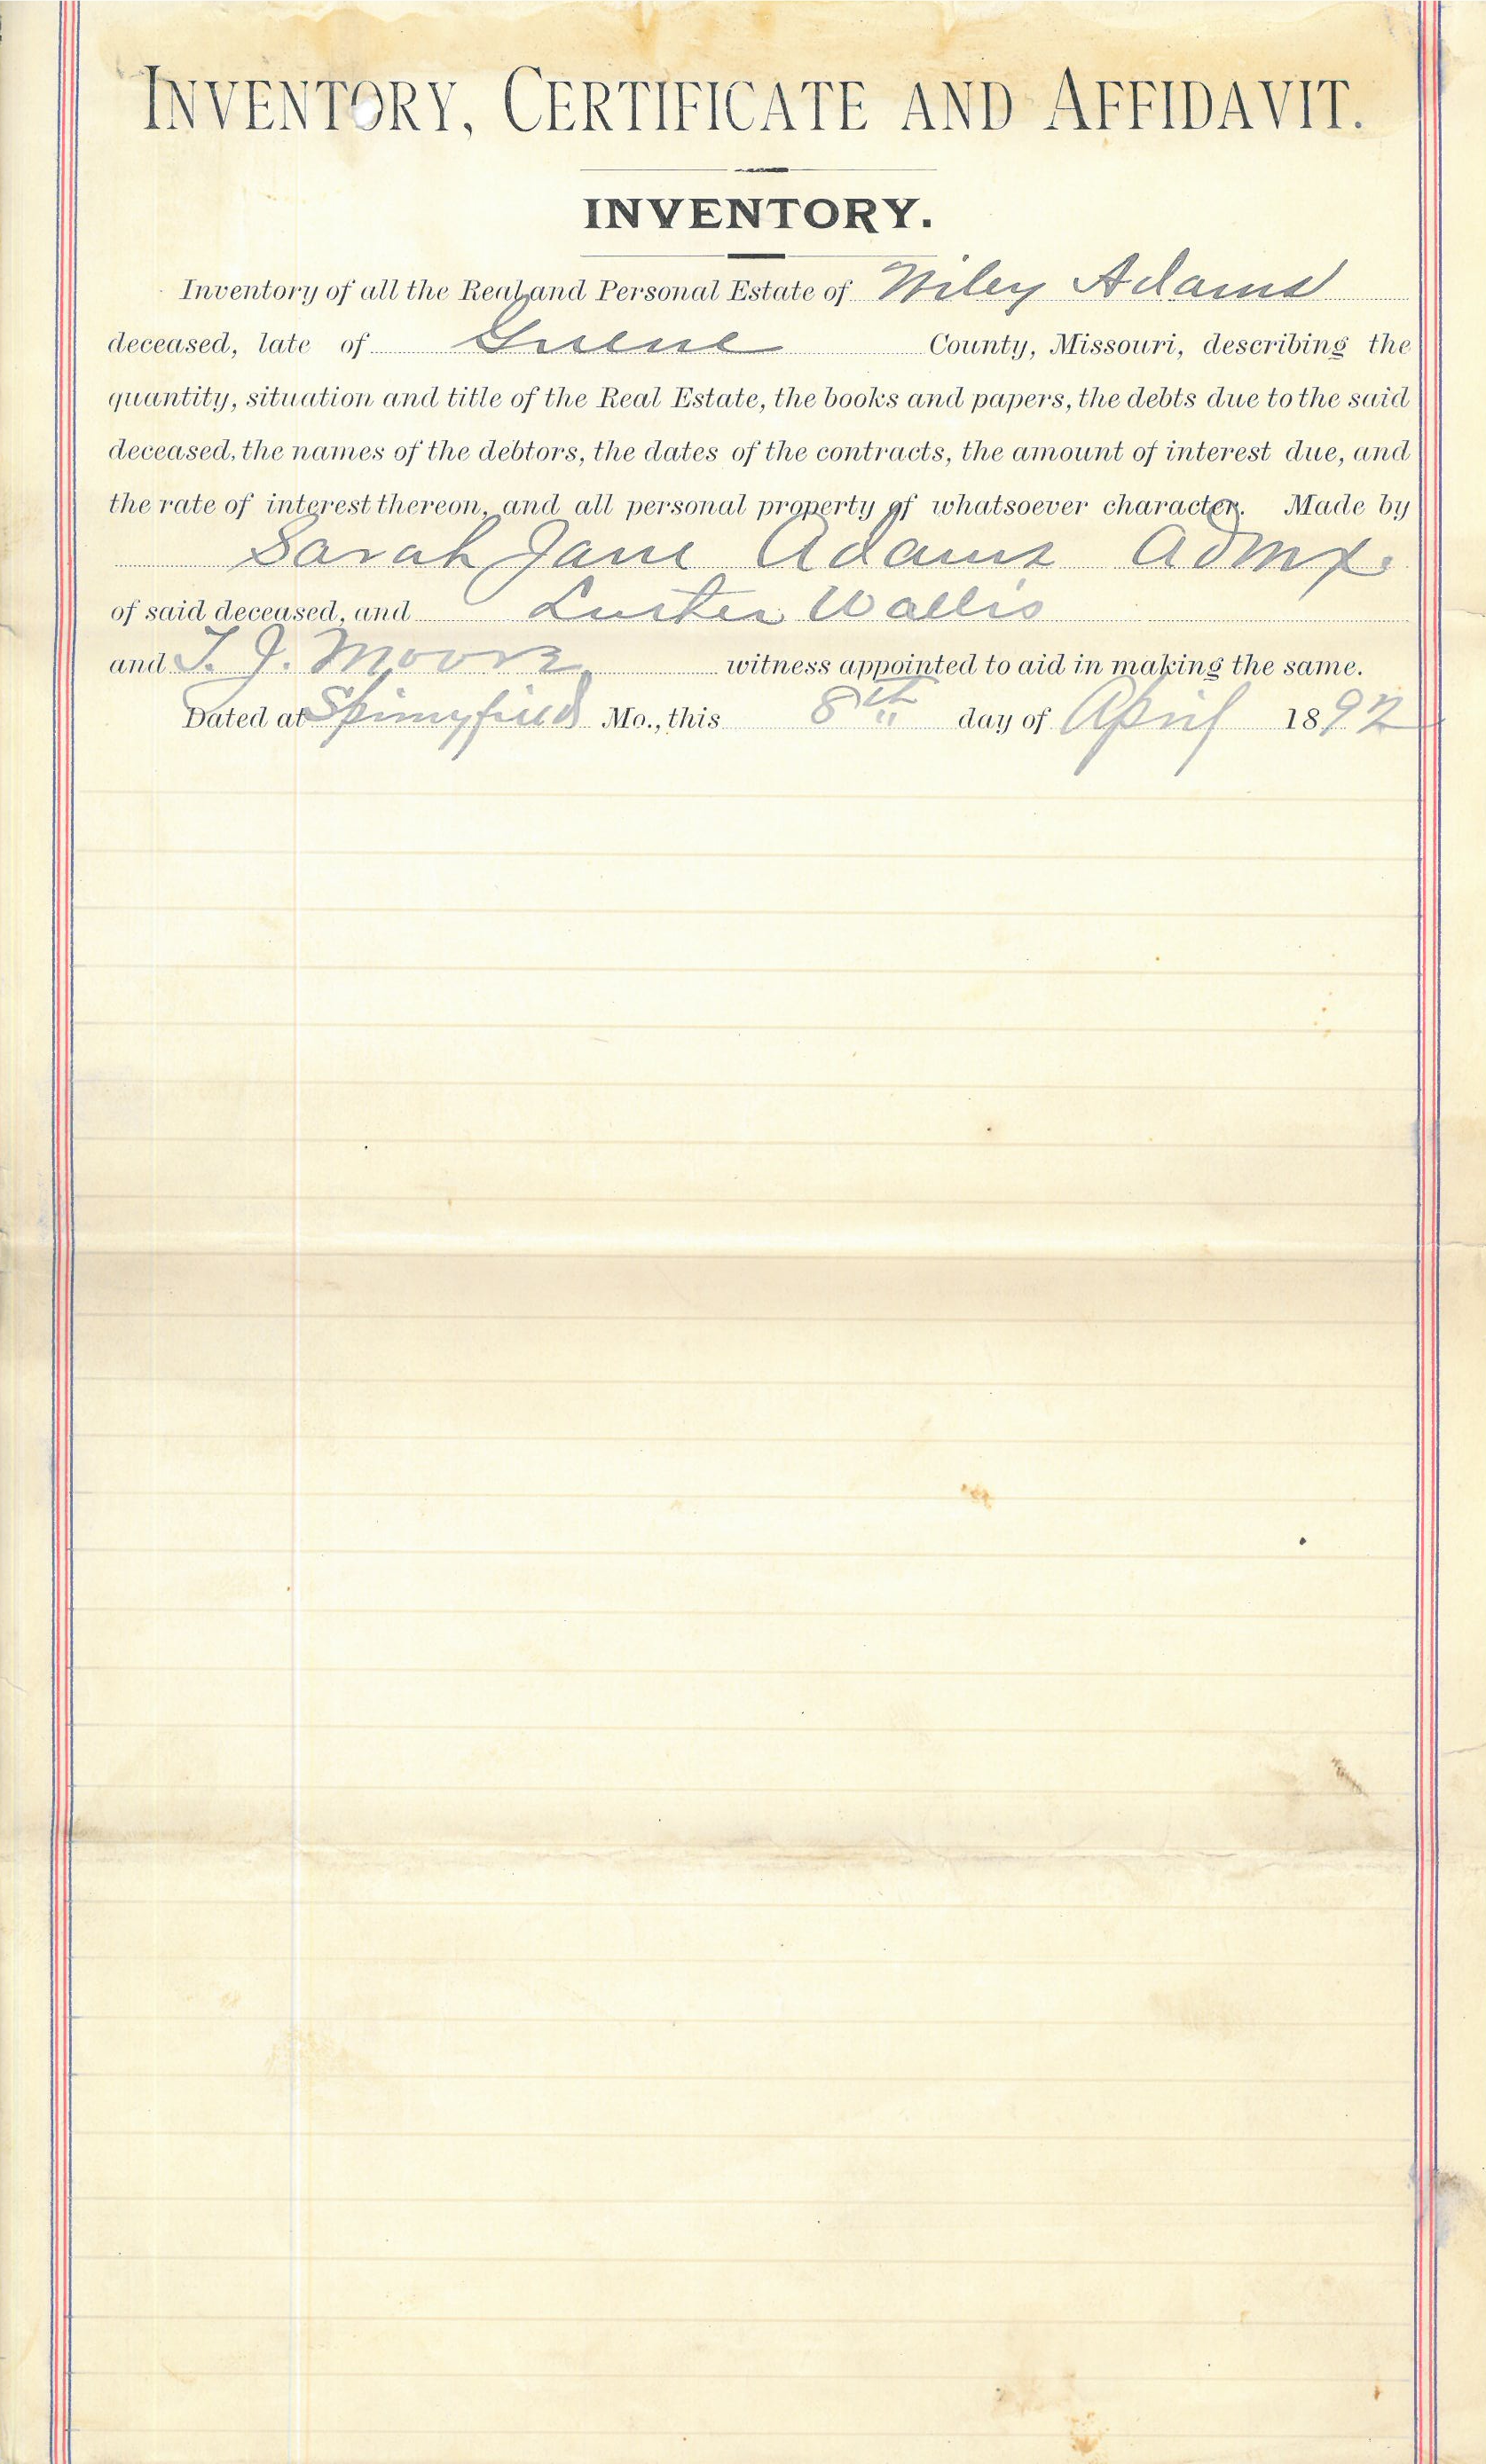 INVENTORY, CERTIFICATE AND AFFIDAVIT.
INVENTORY.
Inventory of all the Real and Personal Estate of Wiley Adams
deceased, late of Greene County, Missouri, describing the
quantity, situation and title of the Real Estate, the books and papers, the debts due to the said
deceased, the names of the debtors, the dates of the contracts, the amount of interest due, and
the rate of interest thereon, and all personal property of whatsoever character. Made by
Sarah Jane Adams Admx.
of said deceased, and Luster Wallis
and T. J. Moore witness appointed to aid in making the same.
Dated at Springfield Mo., this 8th day of April 1892